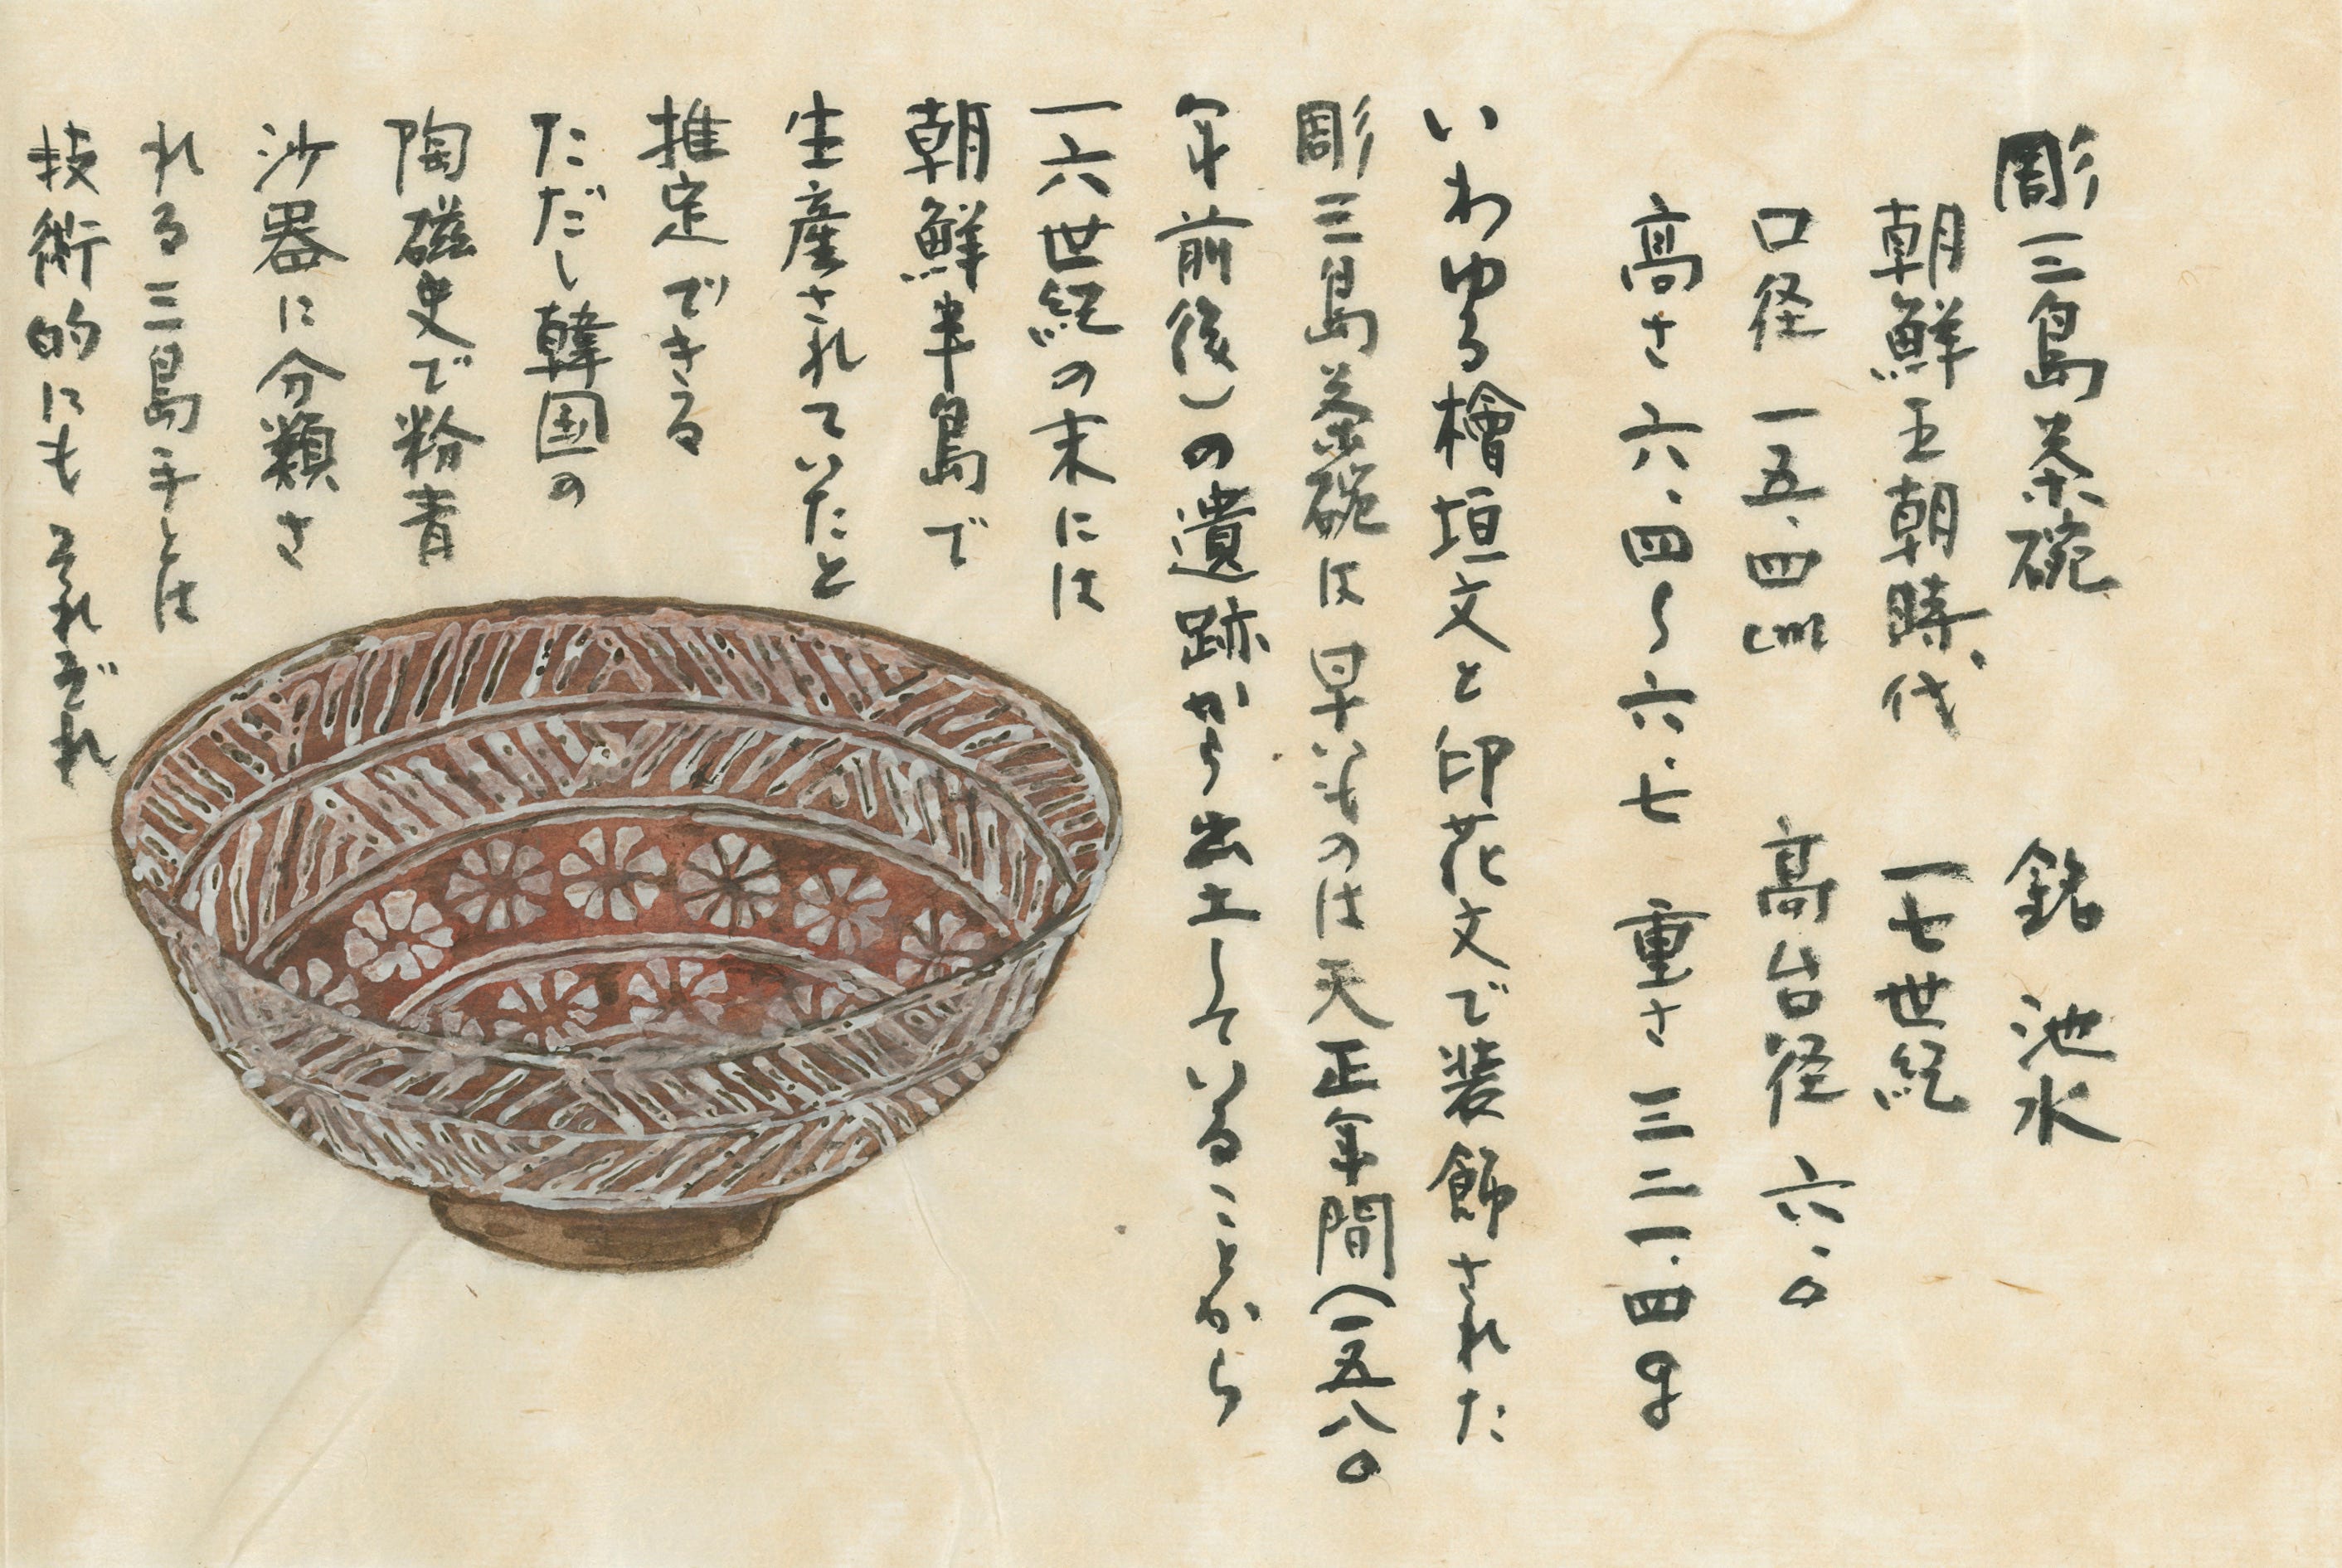 彫三島茶碗　銘　池水
朝鮮王朝時代　一七世紀
口径　一五.四cm　高台径　六.〇
高さ　六.四〜六.七　重さ　三二一.四g
いわゆる檜垣文と印花文で装飾された
彫三島茶碗は早いものは天正年間(一五八〇
年前後)の遺跡から出土していることから
一六世紀の末には
朝鮮半島で
生産されていたと
推定できる
ただし韓国の
陶磁史で粉青
沙器に分類さ
れる三島手とは
技術的にもそれぞれ